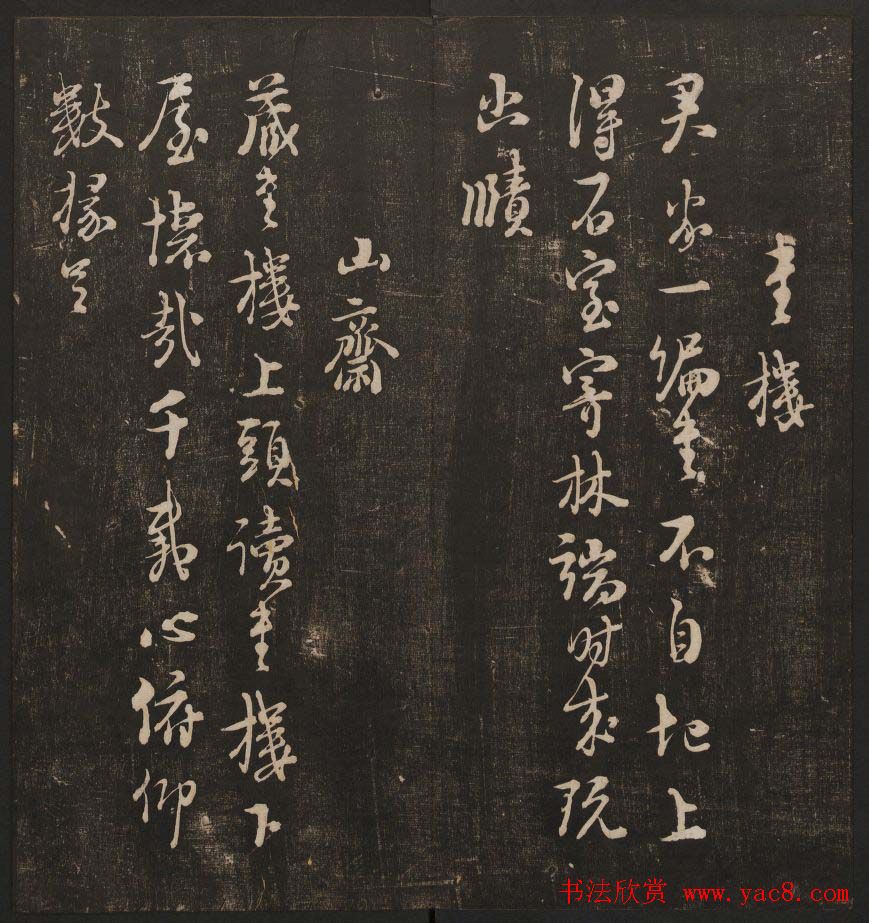 書樓
君家一編書不自圯上
得石室寄林端时来玩
幽賾
山齋
藏書樓上頭讀書樓下
屋懷哉千載心俯仰
數椽足
书法欣赏 www.yac8.com